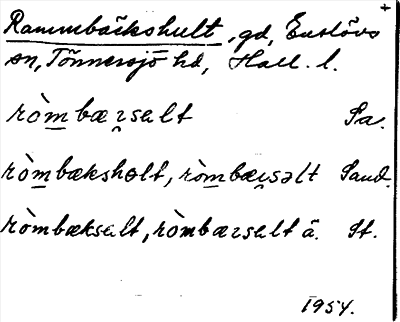 Rammbäckshult, gd, Enslövs
sn, Tönnersjö hd, Hall. l.
ròm̲bæɪ̯səlt Sa.
ròm̲bæksholt, ròm̲bæɪ̯səlt Sand.
ròmbæksəlt, ròmbæɪsəlt ä. St.
1954.